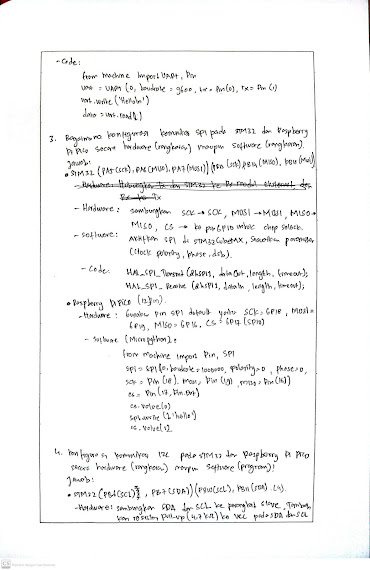 - Code:
from machine import UART, Pin
uart = UART (0, baudrate = 9600, tx = Pin(0), rx = Pin (1)
uart.write ('Hello\n')
data = uart.read()
3. Bagaimana konfigurasi komunikasi SPI pada STM32 dan Raspberry
Pi Pico secara hardware (rangkaian) maupun software (rangkaian).
Jawab:
• STM32 (PA5 (SCK), PA6 (MISO), PA7 (MOSI)) (PB13 (SCK), PB14 (MISO), PB15 (MOSI)
- Hardware: Hubungkan Tx dan STM32 ke Rx
- Hardware: sambungkan SCK → SCK, MOSI → MOSI, MISO →
MISO, CS → ke pin GPIO untuk chip select.
- Software: Aktifkan SPI di STM32CubeMX, sesuaikan parameter
(clock polarity, phase, dsb).
- Code: HAL_SPI_Transmit (&hspi1, dataOut, length, timeout);
HAL_SPI_Receive (&hspi1, dataIn, length, timeout);
• Raspberry Pi Pico
- Hardware: Gunakan pin SPI default yaitu SCK = GP18, MOSI =
GP19, MISO = GP16, CS = GP17 (SPI0)
- Software (Micropython):
from machine import Pin, SPI
spi = SPI(0, baudrate = 1000000, polarity = 0, phase = 0,
sck = Pin (18), mosi = Pin (19), miso = Pin (16))
cs = Pin (17, Pin.OUT)
cs.value(0)
spi.write ('hello')
cs.value(1)
4. Konfigurasi komunikasi I2C pada STM32 dan Raspberry Pi Pico
secara hardware (rangkaian) maupun software (program)!
Jawab:
• STM32 (PB6 (SCL), PB7 (SDA)) (PB10 (SCL), PB11 (SDA)
- Hardware: sambungkan SDA dan SCL ke perangkat slave, Tambah
kan resistor pull-up (4.7 kΩ) ke VCC pada SDA dan SCL